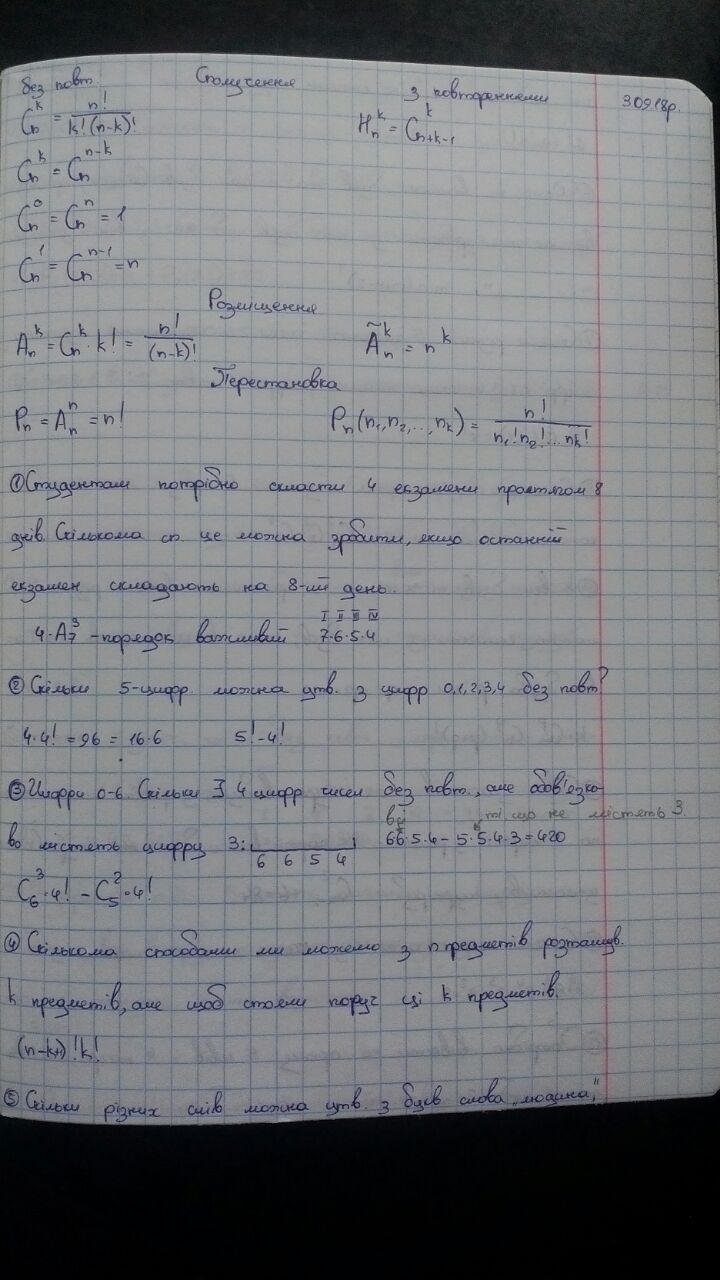 без повт. Сполучення з повтореннями 3.09.18р.
C_n^k = n!/(k!(n-k)!) H_n^k = C_{n+k-1}^k
C_n^k = C_n^{n-k}
C_n^0 = C_n^n = 1
C_n^1 = C_n^{n-1} = n
Розміщення
A_n^k = C_n^k · k! = n!/(n-k)! Ã_n^k = n^k
Перестановка
P_n = A_n^n = n! P_n(n_1, n_2, ..., n_k) = n!/(n_1! n_2! ... n_k!)
① Студентам потрібно скласти 4 екзамени протягом 8
днів. Скількома сп. це можна зробити, якщо останній
екзамен складають на 8-ий день.
I II III IV
4·A_7^3 - порядок важливий 7·6·5·4
② Скільки 5-цифр. можна утв. з цифр 0,1,2,3,4 без повт?
4·4! = 96 = 16·6 5!-4!
③ Цифри 0-6. Скільки ∃ 4 цифр чисел без повт., але обов'язко-
всі ті що не містять 3.
во містять цифру 3: 6 6 5 4 6·6·5·4 - 5·5·4·3 = 420
C_6^3·4! - C_5^2·4!
④ Скількома способами ми можемо з n предметів розташув.
k предметів, але щоб стояли поруч ці k предметів.
(n-k+1)!k!
⑤ Скільки різних слів можна утв. з букв слова „людина,"